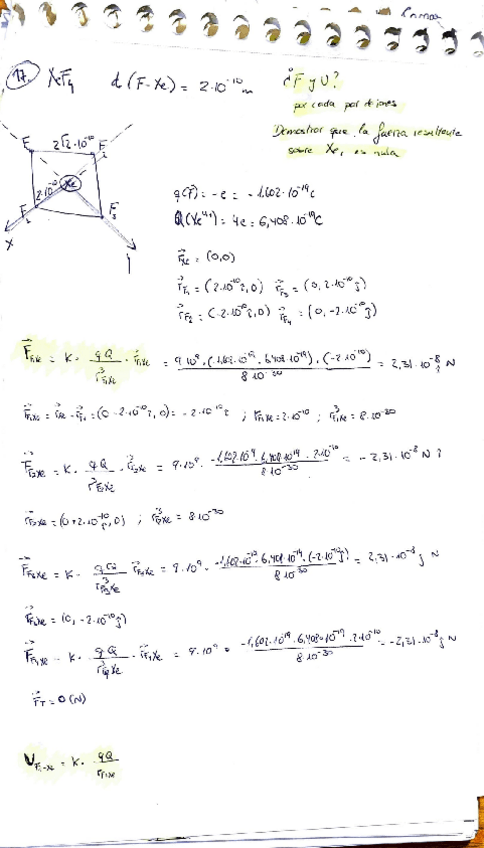 17. XeF4 d(F-Xe) = 2·10⁻¹⁰ m ¿F y U?
por cada par de iones
Demostrar que la fuerza resultante
sobre Xe, es nula
F 2√2·10⁻¹⁰ F
2·10⁻¹⁰ Xe
F₂ F₃
X
q(F) = -e = -1,602·10⁻¹⁹C
Q(Xe⁴⁺) = 4e = 6,408·10⁻¹⁹C
r⃗Xe = (0,0)
r⃗F₁ = (2·10⁻¹⁰i,0) r⃗F₃ = (0, 2·10⁻¹⁰j)
r⃗F₂ = (-2·10⁻¹⁰i,0) r⃗F₄ = (0,-2·10⁻¹⁰j)
F⃗F₁Xe = K· qQ/r³F₁Xe · r⃗F₁Xe = 9·10⁹·(-1,602·10⁻¹⁹·6,408·10⁻¹⁹)·(-2·10⁻¹⁰)/8·10⁻³⁰ = 2,31·10⁻⁸ N
r⃗F₁Xe = r⃗Xe - r⃗F₁ = (0-2·10⁻¹⁰i,0) = -2·10⁻¹⁰i ; rF₁Xe = 2·10⁻¹⁰ ; r³F₁Xe = 8·10⁻³⁰
F⃗F₂Xe = K· qQ/r³F₂Xe · r⃗F₂Xe = 9·10⁹· -1,602·10⁻¹⁹·6,408·10⁻¹⁹·2·10⁻¹⁰/8·10⁻³⁰ = -2,31·10⁻⁸ N i
r⃗F₂Xe = (0+2·10⁻¹⁰i,0) ; r³F₂Xe = 8·10⁻³⁰
F⃗F₃Xe = K· qQ/r³F₃Xe · r⃗F₃Xe = 9·10⁹· -1,602·10⁻¹⁹·6,408·10⁻¹⁹·(-2·10⁻¹⁰j)/8·10⁻³⁰ = 2,31·10⁻⁸j N
r⃗F₃Xe = (0,-2·10⁻¹⁰j)
F⃗F₄Xe = K· qQ/r³F₄Xe · r⃗F₄Xe = 9·10⁹· -1,602·10⁻¹⁹·6,408·10⁻¹⁹·2·10⁻¹⁰/8·10⁻³⁰ = -2,31·10⁻⁸j N
F⃗T = 0 (N)
UF₁-Xe = K· qQ/rF₁Xe